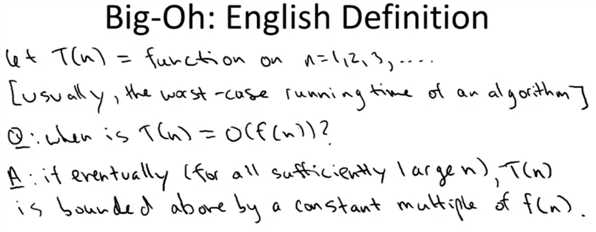 Big-Oh: English Definition
let T(n) = function on n=1,2,3,....
[usually, the worst-case running time of an algorithm]
Q: when is T(n) = O(f(n))?
A: if eventually (for all sufficiently large n), T(n)
is bounded above by a constant multiple of f(n).